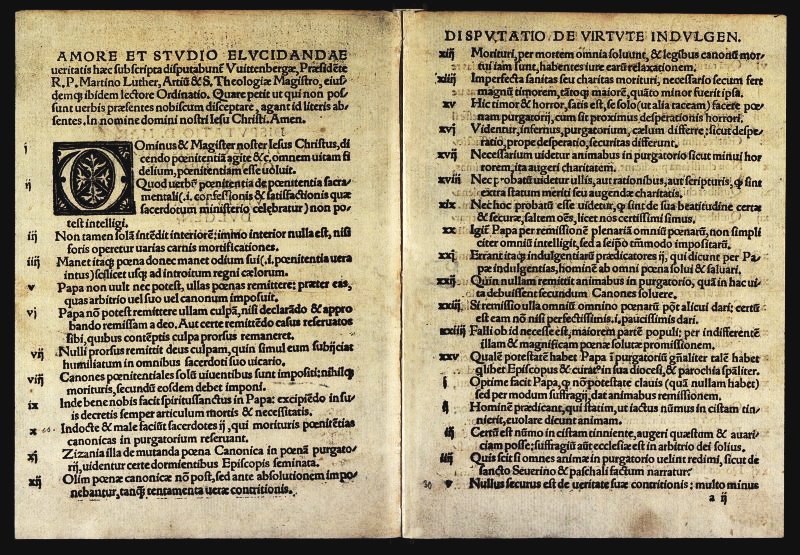 AMORE ET STVDIO ELVCIDANDAE
ueritatis hæc subscripta disputabunt̃ Vuittenbergæ, Præsidẽte
R. P. Martino Luther, Artiũ & S. Theologiæ Magistro, eius-
demq̃ ibidem lectore Ordinatio. Quare petit ut qui non pos-
sunt uerbis præsentes nobiscum disceptare, agant id literis ab-
sentes. In nomine domini nostri Iesu Christi. Amen.
i DOminus & Magister noster Iesus Christus, di
cendo pœnitentiã agite &c, omnem uitam fi
delium, pœnitentiam esse uoluit.
ij Quod uerbũ pœnitentia de pœnitentia sacra-
mentali (.i. confessionis & satisfactionis quæ
sacerdotum ministerio celebratur) non po-
test intelligi.
iij Non tamen solã intẽdit interiorẽ: immo interior nulla est, nisi
foris operetur uarias carnis mortificationes.
iiij Manet itaq̃ pœna donec manet odium sui (.i. pœnitentia uera
intus) scilicet usq̃ ad introitum regni cælorum.
v Papa non uult nec potest, ullas pœnas remittere: præter eas,
quas arbitrio uel suo uel canonum imposuit.
vj Papa nõ potest remittere ullam culpã, nisi declarãdo & appro
bando remissam a deo. Aut certe remittẽdo casus reseruatos
sibi, quibus contẽptis culpa prorsus remaneret.
vij Nulli prorsus remittit deus culpam, quin simul eum subijciat
humiliatum in omnibus sacerdoti suo uicario.
viij Canones pœnitentiales solũ uiuentibus sunt impositi: nihilq̃
morituris, secundũ eosdem debet imponi.
ix Inde bene nobis facit spiritussanctus in Papa: excipiẽdo in su-
is decretis semper articulum mortis & necessitatis.
x Indocte & male faciũt sacerdotes ij, qui morituris pœnitẽtias
canonicas in purgatorium reseruant.
xj Zizania illa de mutanda pœna Canonica in pœnã purgato-
rij, uidentur certe dormientibus Episcopis seminata.
xij Olim pœnæ canonicæ nõ post, sed ante absolutionem impo-
nebantur, tanq̃ tentamenta ueræ contritionis.
DISPVTATIO DE VIRTVTE INDVLGEN.
xiij Morituri, per mortem omnia soluunt, & legibus canonũ mor-
tui iam sunt, habentes iure earũ relaxationem.
xiiij Imperfecta sanitas seu charitas morituri, necessario secum fert
magnũ timorem, tãtoq̃ maiorẽ, quãto minor fuerit ipsa.
xv Hic timor & horror, satis est, se solo (ut alia taceam) facere pœ-
nam purgatorij, cum sit proximus desperationis horrori.
xvj Videntur, infernus, purgatorium, cælum differre: sicut despe-
ratio, prope desperatio, securitas differunt.
xvij Necessarium uidetur animabus in purgatorio sicut minui hor
rorem, ita augeri charitatem.
xviij Nec probatũ uidetur ullis, aut rationibus, aut scripturis, q̃ sint
extra statum meriti seu augendæ charitatis.
xix Nec hoc probatũ esse uidetur, q̃ sint de sua beatitudine certæ
& securæ, saltem oẽs, licet nos certissimi simus.
xx Igit̃ Papa per remissionẽ plenariã omniũ pœnarũ, non simpli
citer omniũ intelligit, sed a seipõ tm̃modo impositarũ.
xxj Errant itaq̃ indulgentiarũ prædicatores ij, qui dicunt per Pa-
pæ indulgentias, hominẽ ab omni pœna solui & saluari.
xxij Quin nullam remittit animabus in purgatorio, quã in hac ui-
ta debuissent secundum Canones soluere.
xxiij Si remissio ulla omniũ omnino pœnarũ põt alicui dari: certũ
est eam nõ nisi perfectissimis .i. paucissimis dari.
xxiiij Falli ob id necesse est, maiorem partẽ populi: per indifferentẽ
illam & magnificam pœnæ solutæ promissionem.
xxv Qualẽ potestatẽ habet Papa ĩ purgatoriũ gñaliter talẽ habet
q̃liber Episcopus & curat̃ in sua diocesi, & parochia spãliter.
i Optime facit Papa, q̃ nõ potestate clauis (quã nullam habet)
sed per modum suffragij, dat animabus remissionem.
ij Hominẽ prædicant, qui statim, ut iactus nũmus in cistam tin-
nierit, euolare dicunt animam.
iij Certũ est nũmo in cistam tinniente, augeri quæstum & auari-
ciam posse; suffragiũ aũt ecclesiæ est in arbitrio dei solius.
iiij Quis scit si omnes animæ in purgatorio uelint redimi, sicut de
sancto Seuerino & paschali factum narratur.
v Nullus securus est de ueritate suæ contritionis: multo minus
a ij